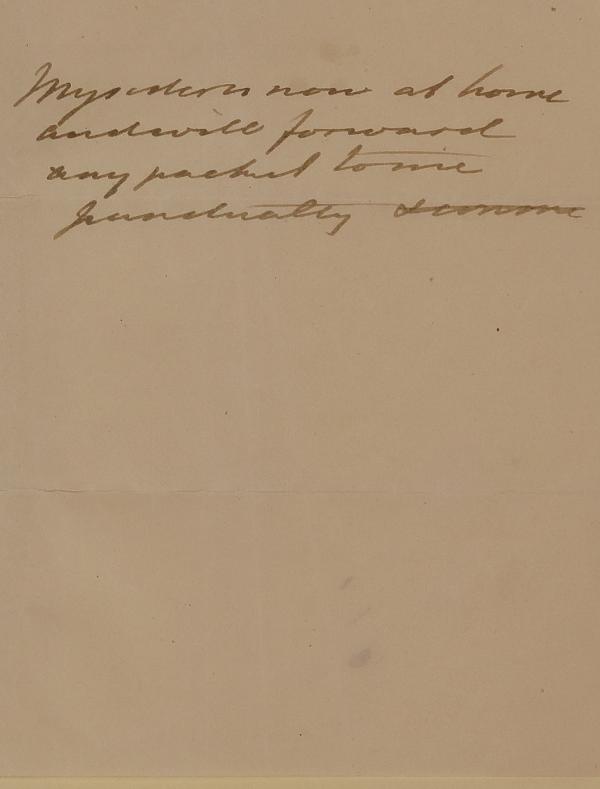 My sister is now at home
and will forward
any packet to me
punctually